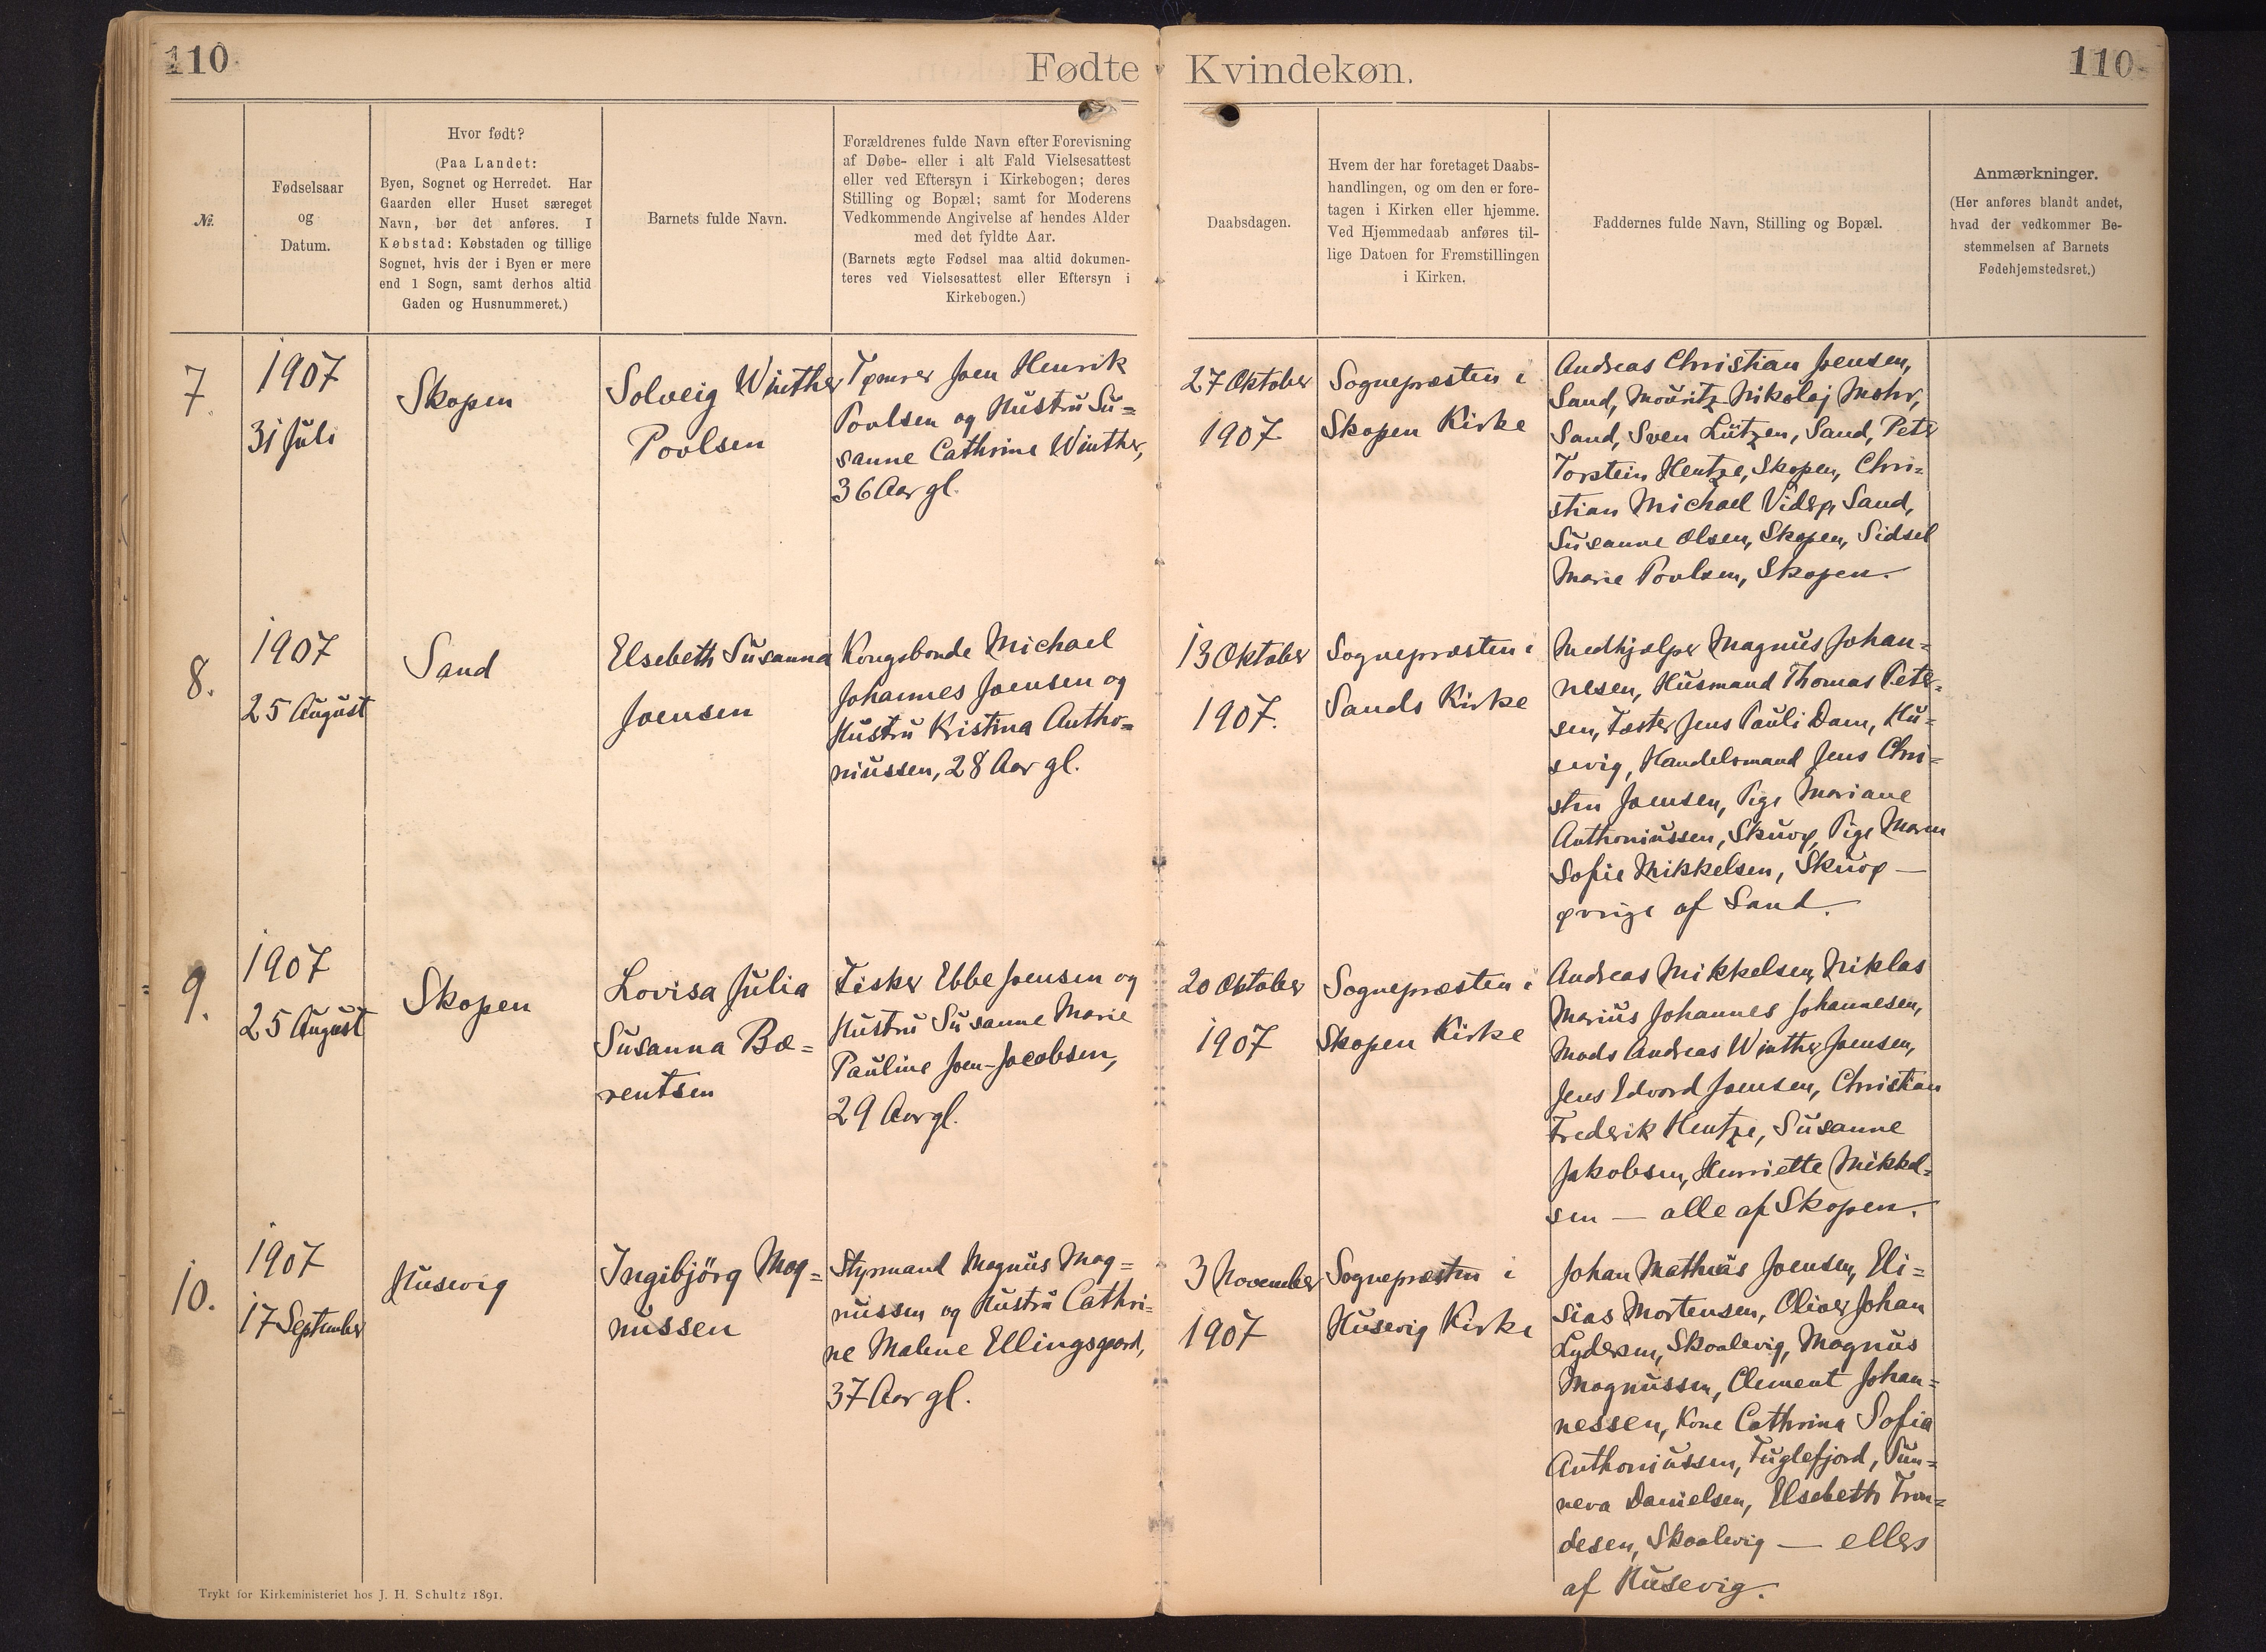 110
Fødte
Kvindekøn.
110
Nr.
Fødselsaar
og
Datum.
Hvor født?
(Paa Landet:
Byen, Sognet og Herredet. Har
Gaarden eller Huset særeget
Navn, bør det anføres. I
Købstad: Købstaden og tillige
Sognet, hvis der i Byen er mere
end 1 Sogn, samt derhos altid
Gaden og Husnummeret.)
Barnets fulde Navn.
Forældrenes fulde Navn efter Forevisning
af Døbe- eller i alt Fald Vielsesattest
eller ved Eftersyn i Kirkebogen; deres
Stilling og Bopæl; samt for Moderens
Vedkommende Angivelse af hendes Alder
med det fyldte Aar.
(Barnets ægte Fødsel maa altid dokumen-
teres ved Vielsesattest eller Eftersyn i
Kirkebogen.)
Daabsdagen.
Hvem der har foretaget Daabs-
handlingen, og om den er fore-
tagen i Kirken eller hjemme.
Ved Hjemmedaab anføres til-
lige Datoen for Fremstillingen
i Kirken.
Faddernes fulde Navn, Stilling og Bopæl.
Anmærkninger.
(Her anføres blandt andet,
hvad der vedkommer Be-
stemmelsen af Barnets
Fødehjemstedsret.)
7.
1907
31 Juli
Skopen
Solveig Winther
Poulsen
Tømrer Joen Henrik
Poulsen og Hustru Su=
sanne Cathrine Winther,
36 Aar gl.
27 Oktober
1907
Sognepræsten i
Skopen Kirke
Andreas Christian Joensen,
Sand, Mouritz Nikolaj Mohr,
Sand, Sven Lützen, Sand, Peter
Torstein Hentze, Skopen, Chri=
stian Michael Viderø, Sand,
Susanne Olsen, Skopen, Sidsel
Marie Poulsen, Skopen.
8.
1907
25 August
Sand
Elsebeth Susanna
Joensen
Kongsbonde Michael
Johannes Joensen og
Hustru Kristina Antho=
niussen, 28 Aar gl.
13 Oktober
1907.
Sognepræsten i
Sands Kirke
Medhjælper Magnus Johan=
nesen, Husmand Thomas Peter=
sen, Fæster Jens Pauli Dam, Hu=
sevig, Handelsmand Jens Chri=
sten Joensen, Pige Mariane
Anthoniussen, Skuø, Pige Maren
Sofie Mikkelsen, Skuø —
øvrige af Sand.
9.
1907
25 August
Skopen
Lovisa Julia
Susanna Bæ=
rentsen
Fisker Ebbe Joensen og
Hustru Susanne Marie
Pauline Joen-Jacobsen,
29 Aar gl.
20 Oktober
1907
Sognepræsten i
Skopen Kirke
Andreas Mikkelsen, Niklas
Marius Johannes Johannesen,
Mads Andreas Winther Joensen,
Jens Edvard Joensen, Christian
Frederik Hentze, Susanne
Jakobsen, Henriette Mikkel=
sen — alle af Skopen.
10.
1907
17 September
Husevig
Ingibjörg Mag=
nussen
Styrmand Magnus Mag=
nussen og Hustru Cathri=
ne Malene Ellingsgaard,
37 Aar gl.
3 November
1907
Sognepræsten i
Husevig Kirke
Johan Mathias Joensen, Eli=
sias Mortensen, Oliver Johan
Lydersen, Skaalevig, Magnus
Magnussen, Clement Johan=
nessen, Kone Cathrina Sofia
Anthoniussen, Fuglefjord, Sun=
neva Danielsen, Elsebeth Tron=
desen, Skaalevig — ellers
af Husevig.
Trykt for Kirkeministeriet hos J. H. Schultz 1891.